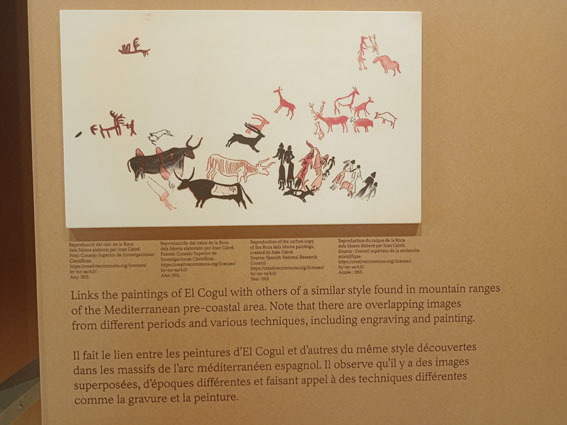 Reproducció del calc de la Roca
dels Moros elaborat per Joan Cabré.
Font: Consejo Superior de Investigaciones
Científicas.
https://creativecommons.org/licenses/
by-nc-sa/4.0/
Any: 1915.
Reproducción del calco de la Roca
dels Moros elaborado por Joan Cabré.
Fuente: Consejo Superior de
Investigaciones Científicas.
https://creativecommons.org/licenses/
by-nc-sa/4.0/
Año: 1915.
Reproduction of the carbon copy
of the Roca dels Moros paintings,
created by Joan Cabré.
Source: Spanish National Research
Council
https://creativecommons.org/licenses/
by-nc-sa/4.0/
Year: 1915.
Reproduction du calque de la Roca
dels Moros élaboré par Joan Cabré.
Source : Conseil supérieur de la recherche
scientifique.
https://creativecommons.org/licenses/
by-nc-sa/4.0/
Année : 1915.
Links the paintings of El Cogul with others of a similar style found in mountain ranges
of the Mediterranean pre-coastal area. Note that there are overlapping images
from different periods and various techniques, including engraving and painting.
Il fait le lien entre les peintures d'El Cogul et d'autres du même style découvertes
dans les massifs de l'arc méditerranéen espagnol. Il observe qu'il y a des images
superposées, d'époques différentes et faisant appel à des techniques différentes
comme la gravure et la peinture.